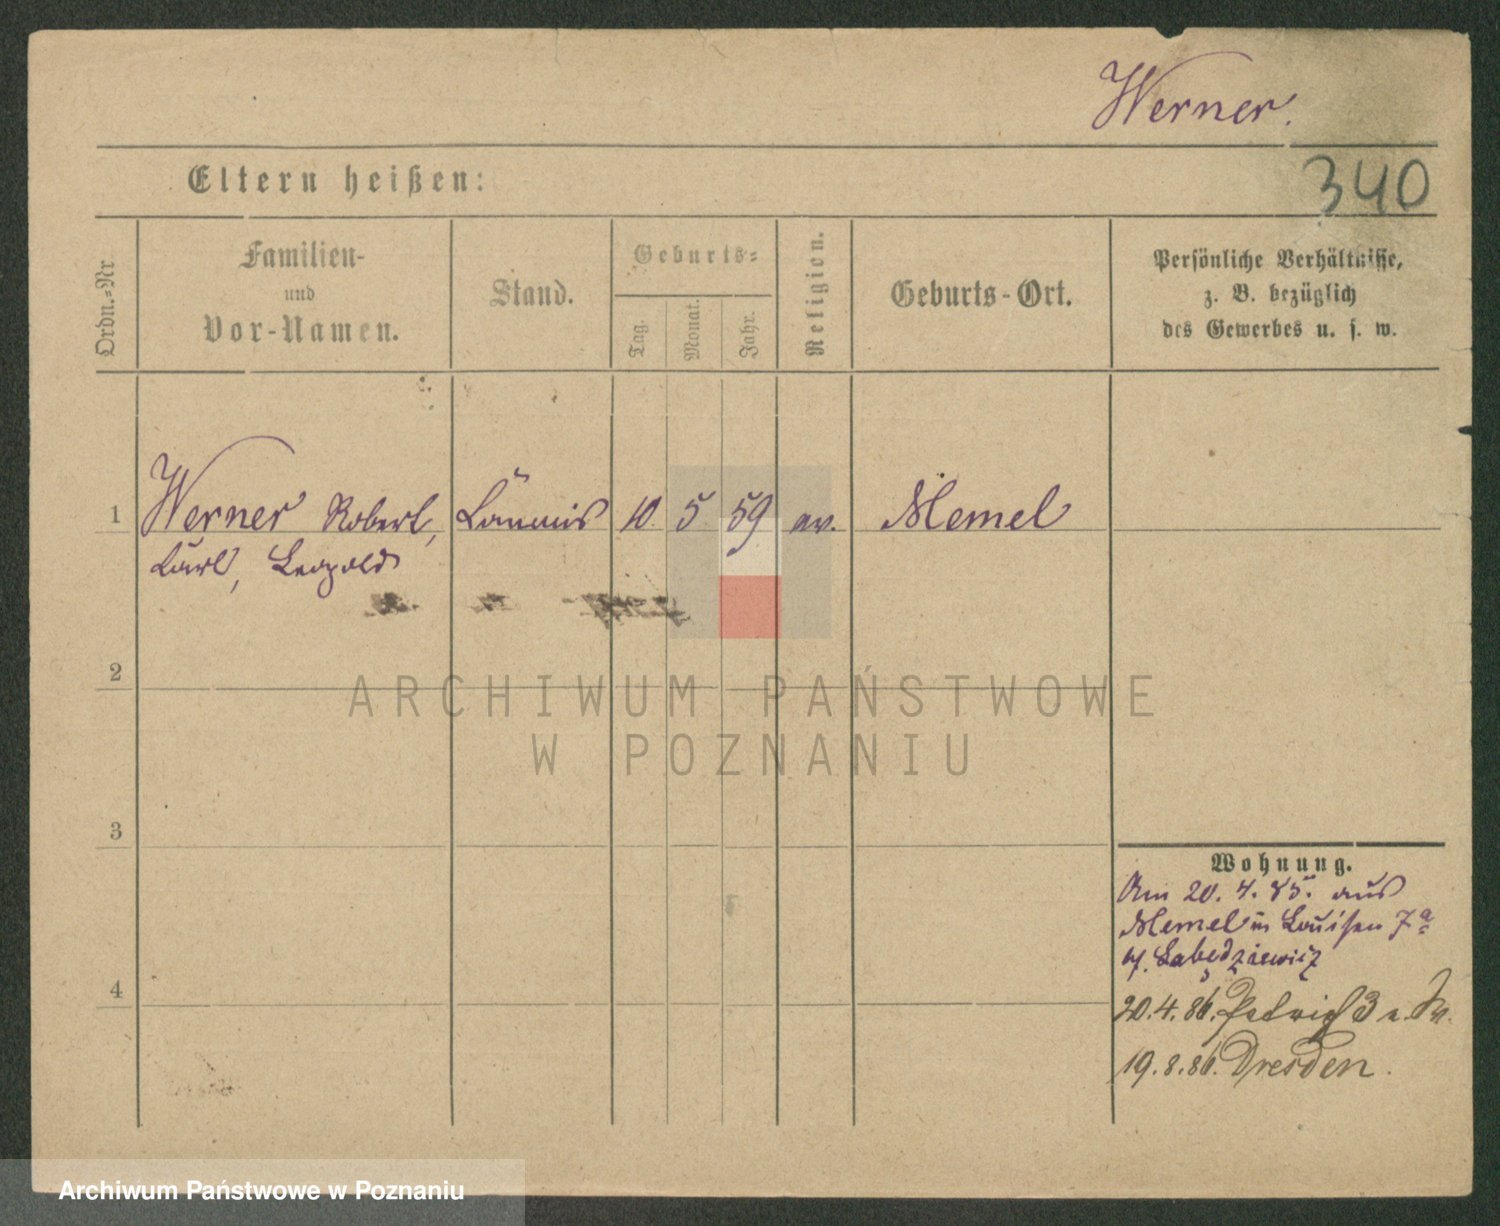 Werner.
Eltern heißen:
340
Ordn.=Nr.
Familien-
und
Vor-Namen.
Stand.
Geburts=
Tag.
Monat.
Jahr.
Religion.
Geburts-Ort.
Persönliche Verhältnisse,
z. B. bezüglich
des Gewerbes u. s. w.
1 Werner Robert, 10. 5. 59 ev. Memel
Carl, Leopold
2
3
4
Wohnung.
Am 20. 4. 85. aus
Memel in Louisen 7a
Łabędziewicz
20.4.86. 3
19.8.86. Dresden.
ARCHIWUM PAŃSTWOWE
W POZNANIU
Archiwum Państwowe w Poznaniu